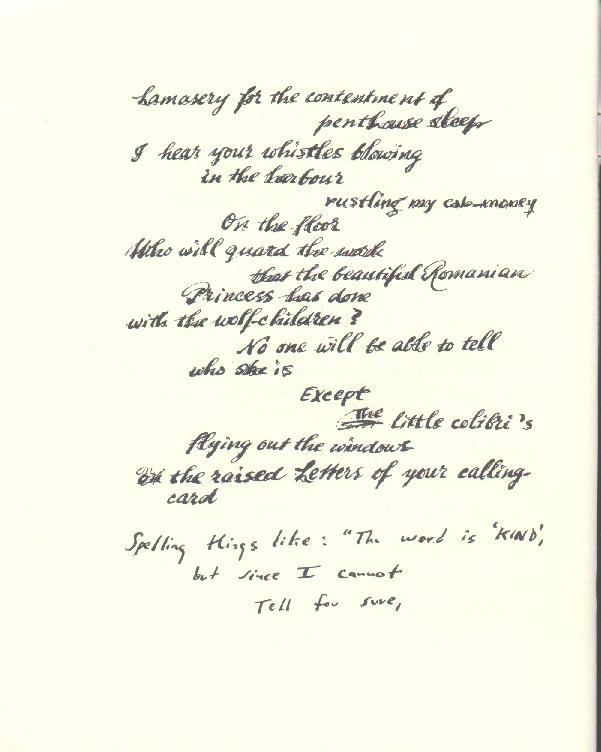 Lamasery for the contentment of
penthouse sleep
I hear your whistles blowing
in the harbour
rustling my cab-money
On the floor
Who will guard the work
that the beautiful Romanian
Princess has done
with the wolf-children?
No one will be able to tell
who she is
Except
The little colibri's
flying out the windows
the raised Letters of your calling-
card
Spelling things like: "The word is 'KIND',
but since I cannot
Tell for sure,